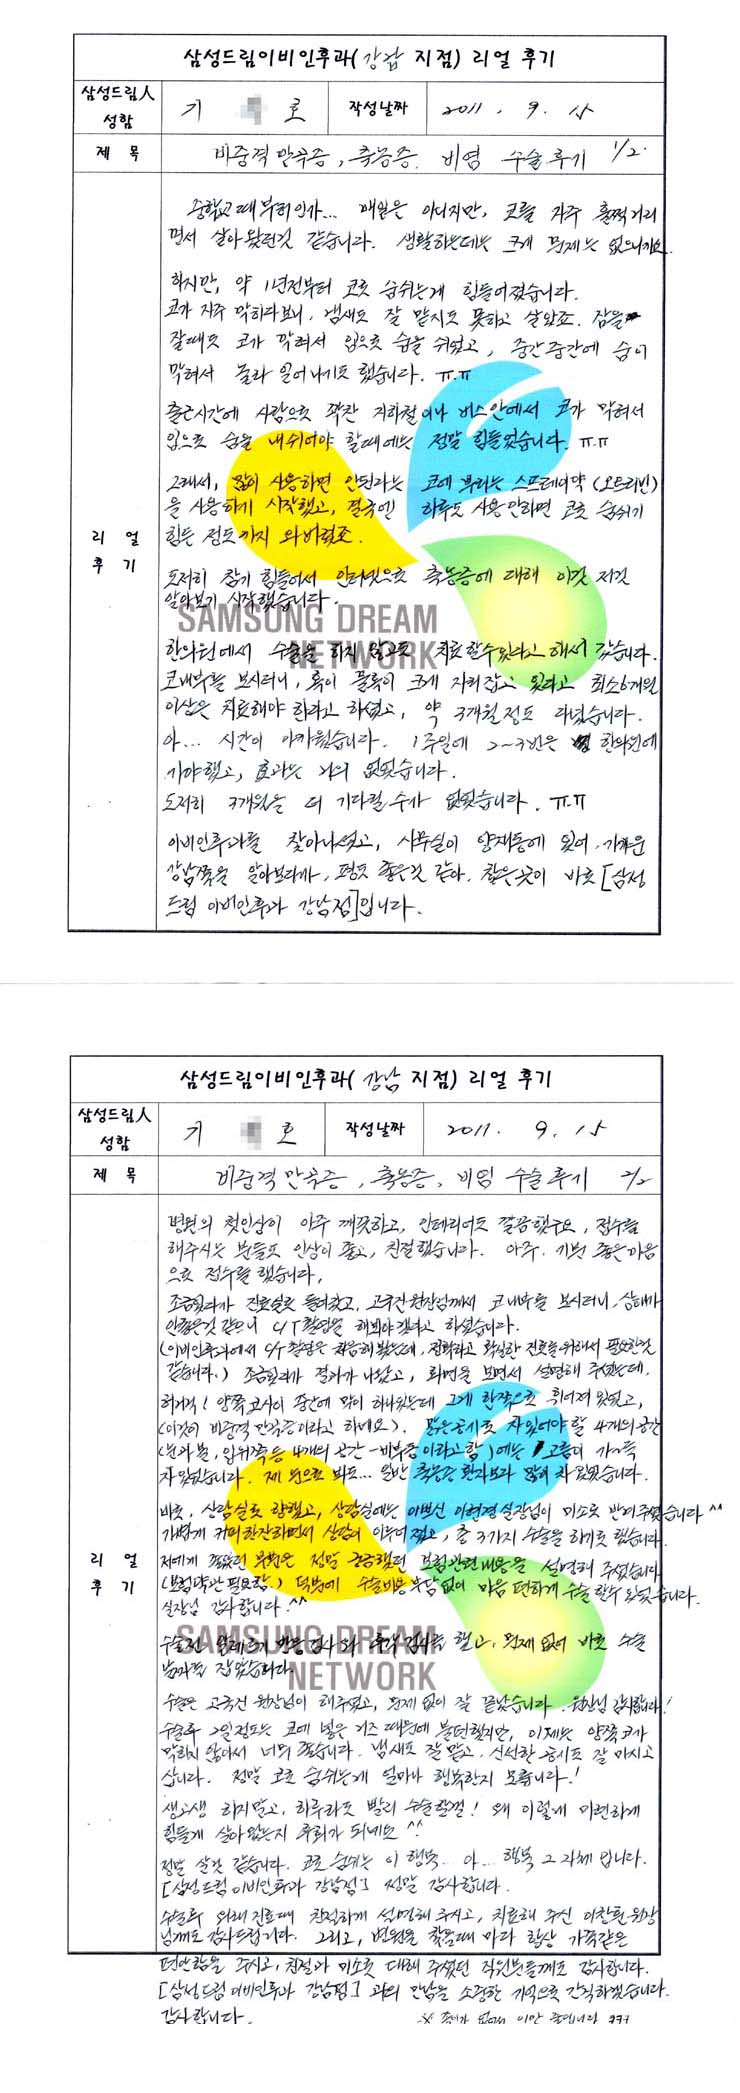 삼성드림이비인후과( 강남 지점) 리얼 후기
삼성드림人 성함
기 호
작성날짜
2011. 9. 15
제 목
비중격만곡증, 축농증, 비염 수술후기 1/2.
리 얼 후 기
중학교때부터인가... 매일은 아니지만, 코를 자주 훌쩍거리
면서 살아왔던것 같습니다. 생활하는데는 크게 문제는 없으니까요.
하지만, 약 1년전부터 코로 숨쉬는게 힘들어졌습니다.
코가 자주 막히다보니, 냄새도 잘 맡지도 못하고 살았죠. 잠을
잘때도 코가 막혀서 입으로 숨을 쉬었고, 중간중간에 숨이
막혀서 놀라 일어나기도 했습니다. ㅠ.ㅠ
출근시간에 사람으로 꽉찬 지하철이나 버스안에서 코가 막혀서
입으로 숨을 내쉬어야 할때에는 정말 힘들었습니다. ㅠ.ㅠ
그래서, 많이 사용하면 안된다는 코에 뿌리는 스프레이약(오트리빈)
을 사용하기 시작했고, 결국엔 하루도 사용안하면 코로 숨쉬기
힘든 정도까지 와버렸죠.
도저히 참기 힘들어서 인터넷으로 축농증에 대해 이것 저것
알아보기 시작했습니다.
SAMSUNG DREAM
NETWORK
한의원에서 수술을 하지 않고도 치료할수있다고 해서 갔습니다.
코내부를 보시더니, 혹이 물혹이 크게 자리잡고 있다고 최소6개월
이상은 치료해야 한다고 하셨고, 약 3개월정도 다녔습니다.
아... 시간이 아까웠습니다. 1주일에 2~3번은 한의원에
가야했고, 효과는 거의 없었습니다.
도저히 3개월을 더 기다릴 수가 없었습니다. ㅠ.ㅠ
이비인후과를 찾아나섰고, 사무실이 양재동에 있어, 가까운
강남쪽을 알아보다가, 평도 좋은것 같아, 찾은곳이 바로 [삼성
드림 이비인후과 강남점]입니다.
삼성드림이비인후과( 강남 지점) 리얼 후기
삼성드림人 성함
기 호
작성날짜
2011. 9. 15
제 목
비중격만곡증, 축농증, 비염 수술후기 2/2
리 얼 후 기
병원의 첫인상이 아주 깨끗하고, 인테리어도 깔끔했구요, 접수를
해주시는 분들도 인상이 좋고, 친절했습니다. 아주 기분 좋은마음
으로 접수를 했습니다.
조금있다가 진료실로 들어갔고, 고국진원장님께서 코내부를 보시더니, 상태가
안좋은것 같으니 C/T촬영을 해봐야겠다고 하셨습니다.
(이비인후과에서 C/T촬영은 처음해봤는데, 정확하고 확실한 진료를위해서 필요한것
같습니다.) 조금있다가 결과가 나왔고, 화면을 보면서 설명해 주셨는데,
허거걱! 양쪽코사이 중간에 막이 하나있는데 그게 한쪽으로 휘어져 있었고,
(이것이 비중격만곡증이라고 하네요). 맑은공기로 차있어야 할 4개의 공간
(눈과 볼, 입위쪽등 4개의 공간-비부동이라고함)에는 고름이 가득
차있었습니다. 제 눈으로 봐도... 일반 축농증환자보다 많이 차 있었습니다.
바로, 상담실로 향했고, 상담실에는 이쁘신 이현경실장님이 미소로 반겨주셨습니다^^
가볍게 커피한잔하면서 상담이 이루어졌고, 총 3가지 수술을 하기로 했습니다.
저에게 있었던 부분은 정말 궁금했던 보험관련내용을 설명해 주셨습니다
(보험약관 필요함.) 덕분에 수술비용부담없이 마음 편하게 수술할수 있었습니다.
실장님 감사합니다.^^
수술전 알레르기 반응검사와 후각검사를 했고, 문제 없어 바로 수술
날짜를 잡았습니다.
SAMSUNG DREAM
NETWORK
수술은 고국진 원장님이 해주셨고, 문제없이 잘 끝났습니다. 원장님 감사합니다!
수술후 2일정도는 코에 넣은 거즈 때문에 불편했지만, 이제는 양쪽코가
막히지 않아서 너무 좋습니다. 냄새도 잘 맡고, 신선한 공기도 잘 마시고
삽니다. 정말 코로 숨쉬는게 얼마나 행복한지 모릅니다!
생고생 하지말고, 하루라도 빨리 수술할껄! 왜 이렇게 미련하게
힘들게 살아왔는지 후회가 되네요^^
정말 살것 같습니다. 코로 숨쉬는 이 행복.. 아... 행복 그 자체입니다.
[삼성드림이비인후과 강남점] 정말 감사합니다.
수술후 외래진료때 친절하게 설명해 주시고, 치료해 주신 이창훈원장
님께도 감사드립니다. 그리고, 병원을 찾을때 마다 항상 가족같은
편안함을 주시고, 친절과 미소로 대해 주셨던 직원분들께도 감사합니다.
[삼성드림이비인후과 강남점] 과의 만남을 소중한 기억으로 간직하겠습니다.
감사합니다.